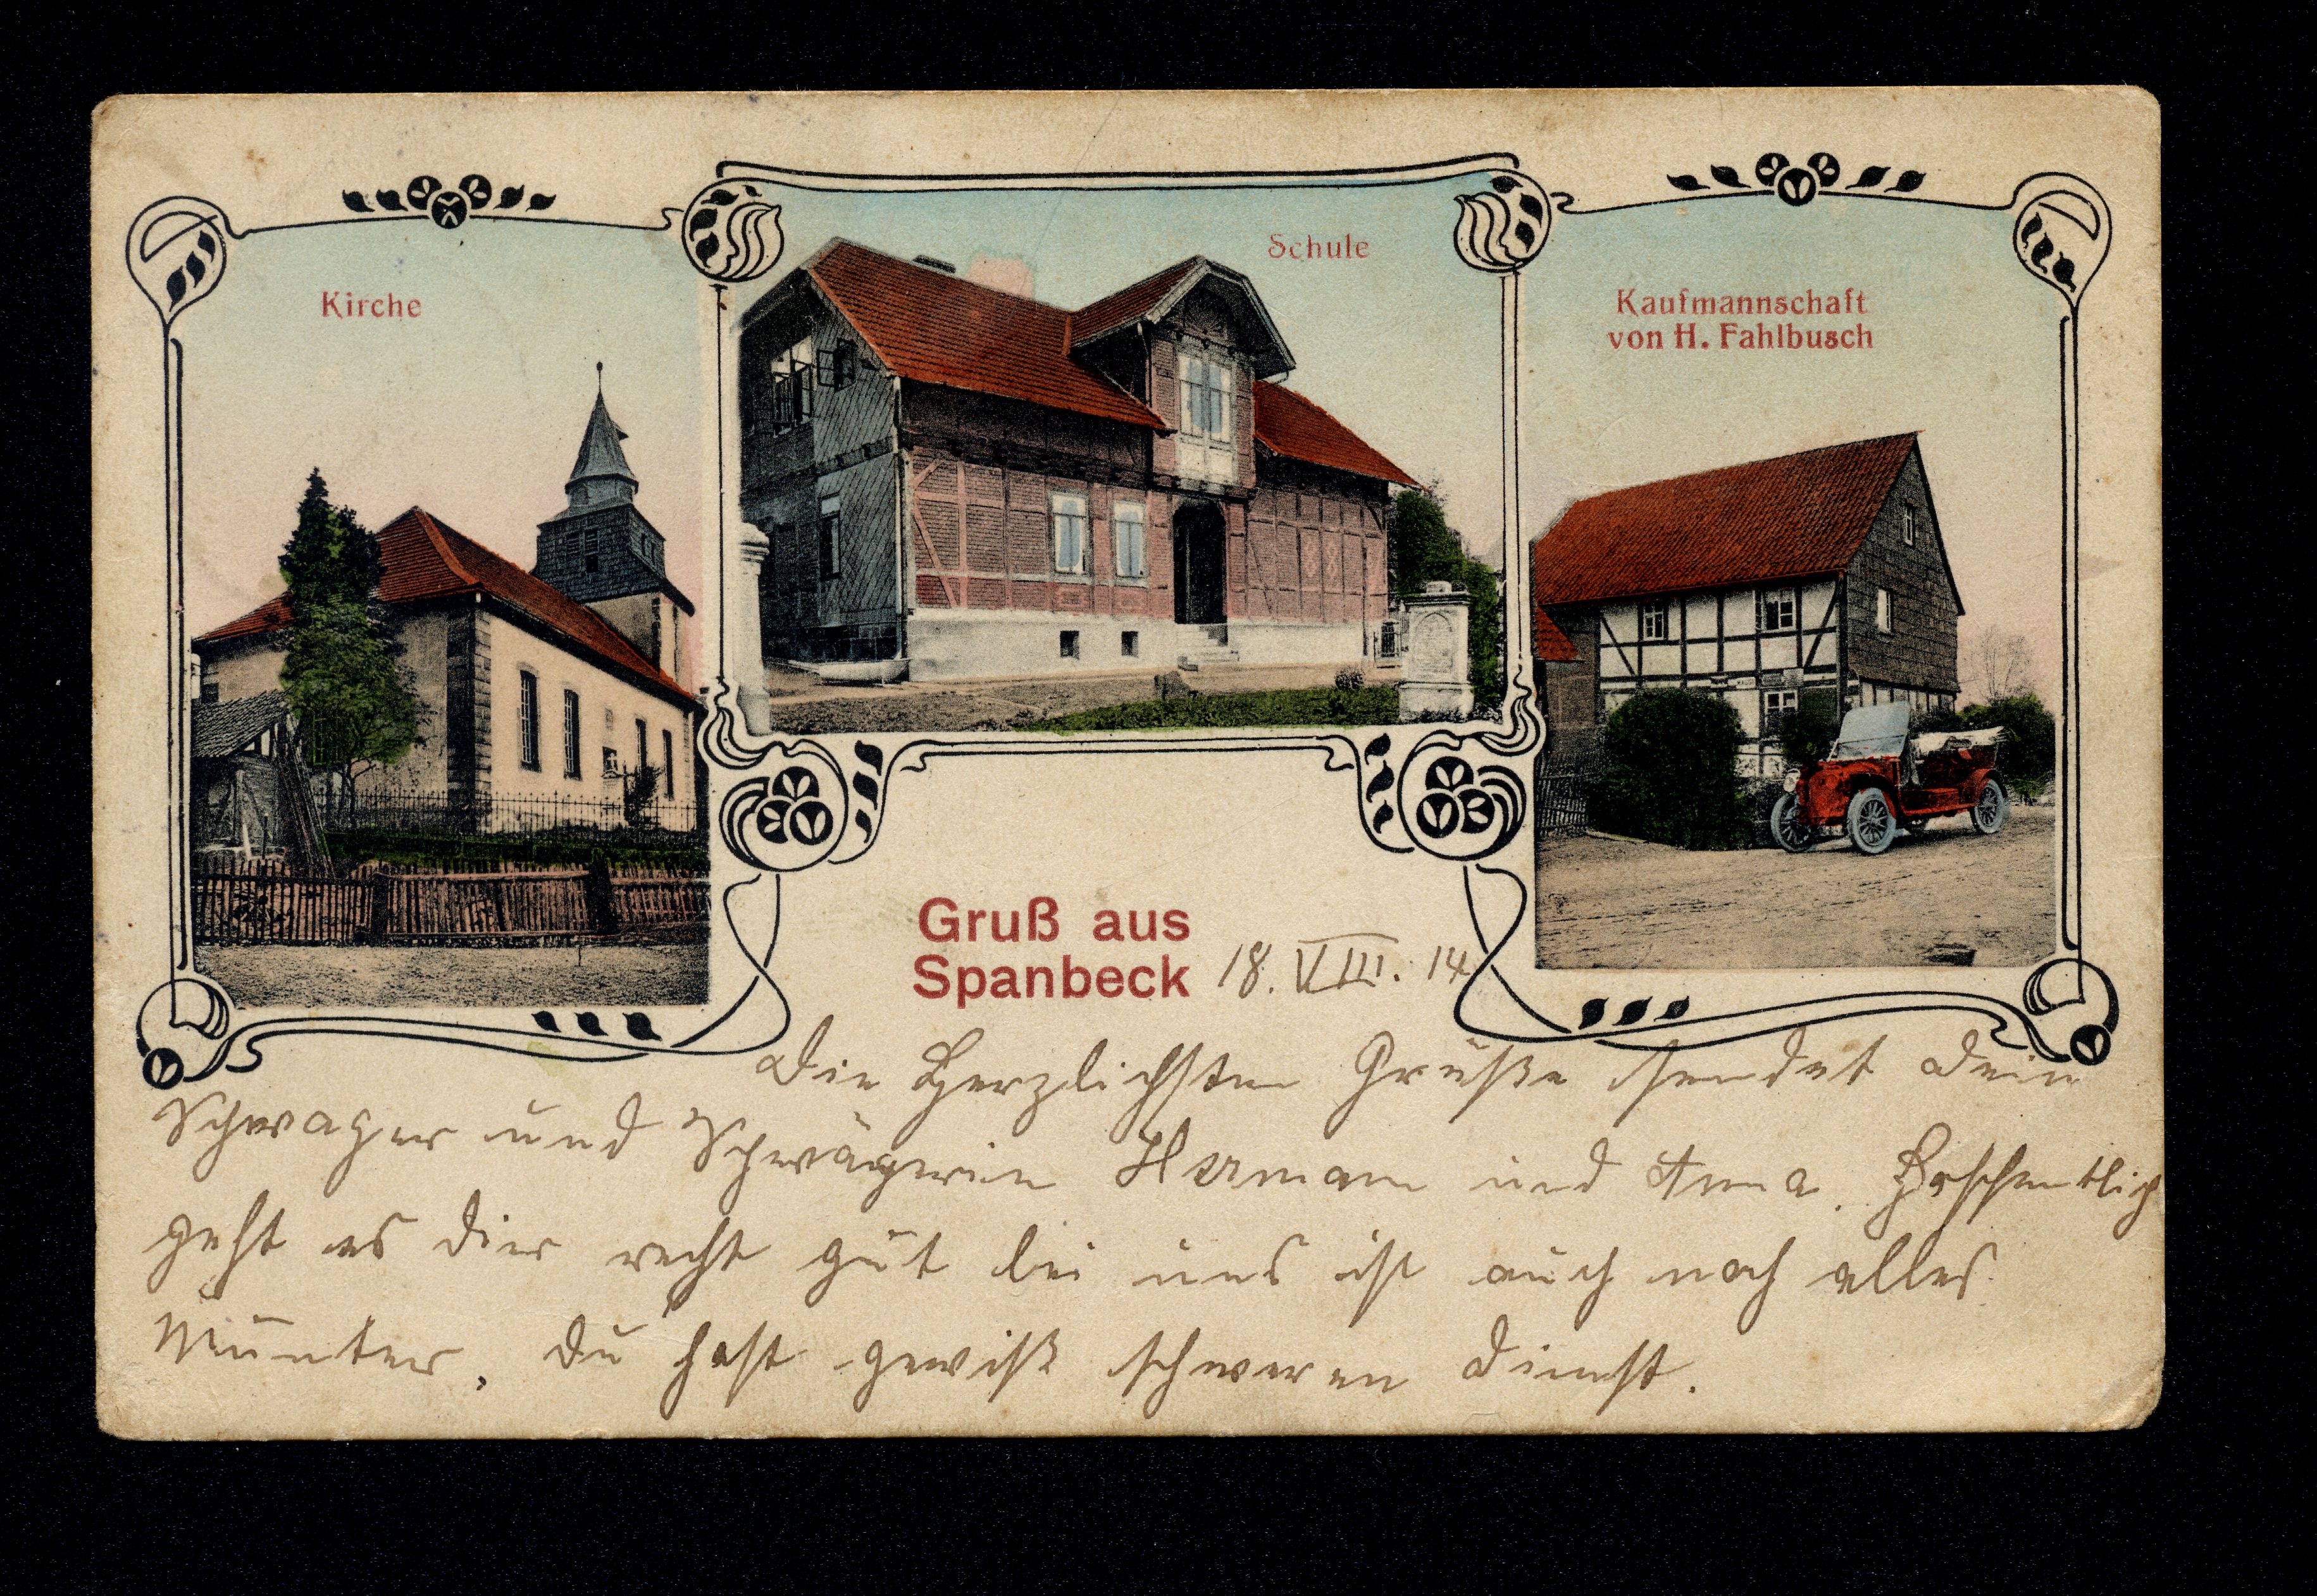 Kirche
Schule
Kaufmannschaft
von H. Fahlbusch
Gruß aus
Spanbeck 18. VIII. 14
Die Herzlichsten Grüße sendet dein
Schwager und Schwägerin Herman und Anna. Hoffentlich
geht es dier recht gut bei uns ist auch noch alles
Munter. du hast gewiß schweren dienst.